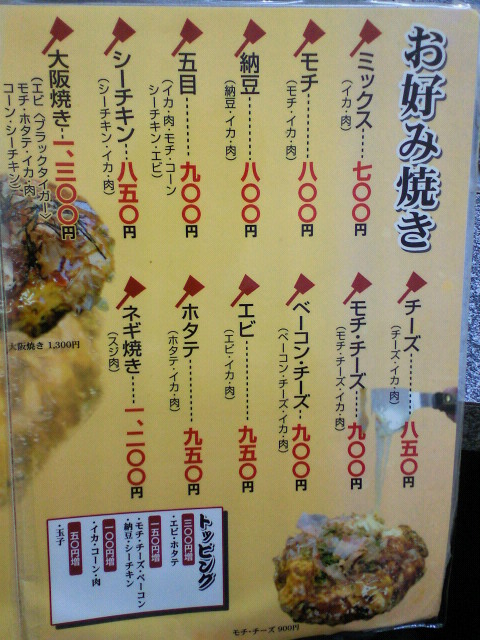 お好み焼き
ミックス……七〇〇円
(イカ・肉)
モチ……八〇〇円
(モチ・イカ・肉)
納豆……八〇〇円
(納豆・イカ・肉)
五目……九〇〇円
(イカ・肉・モチ・コーン
シーチキン・エビ)
シーチキン…八五〇円
(シーチキン・イカ・肉)
大阪焼き…一、三〇〇円
(エビ〈ブラックタイガー〉
モチ・ホタテ・イカ・肉
コーン・シーチキン)
大阪焼き 1,300円
チーズ……八五〇円
(チーズ・イカ・肉)
モチ・チーズ……九〇〇円
(モチ・チーズ・イカ・肉)
ベーコン・チーズ…九〇〇円
(ベーコン・チーズ・イカ・肉)
エビ……九五〇円
(エビ・イカ・肉)
ホタテ……九五〇円
(ホタテ・イカ・肉)
ネギ焼き……一、二〇〇円
(スジ肉)
トッピング
三〇〇円増
・エビ・ホタテ
一五〇円増
・モチ・チーズ・ベーコン
・納豆・シーチキン
一〇〇円増
・イカ・コーン・肉
五〇円増
・玉子
モチ・チーズ 900円